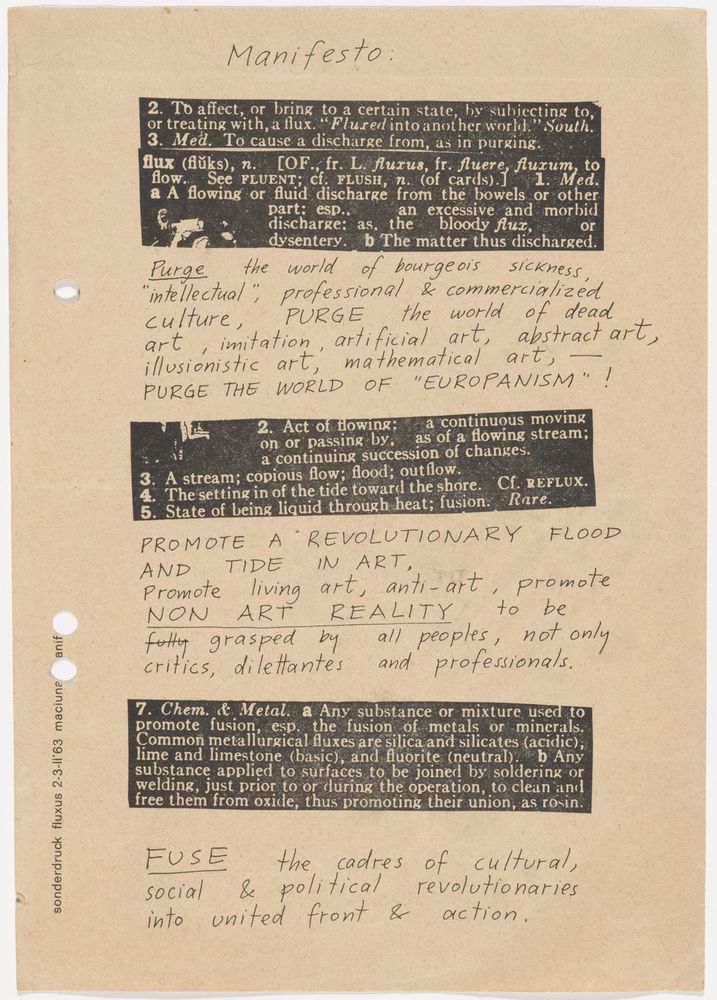 Manifesto:
2. To affect, or bring to a certain state, by subjecting to,
or treating with, a flux. "Fluxed into another world." South.
3. Med. To cause a discharge from, as in purging.
flux (flŭks), n. [OF., fr. L. fluxus, fr. fluere, fluxum, to
flow. See FLUENT; cf. FLUSH, n. (of cards).] 1. Med.
a A flowing or fluid discharge from the bowels or other
part: esp., an excessive and morbid
discharge: as, the bloody flux, or
dysentery. b The matter thus discharged.
Purge the world of bourgeois sickness,
"intellectual", professional & commercialized
culture, PURGE the world of dead
art, imitation, artificial art, abstract art,
illusionistic art, mathematical art, —
PURGE THE WORLD OF "EUROPANISM"!
2. Act of flowing: a continuous moving
on or passing by, as of a flowing stream;
a continuing succession of changes.
3. A stream; copious flow; flood; outflow.
4. The setting in of the tide toward the shore. Cf. REFLUX.
5. State of being liquid through heat; fusion. Rare.
PROMOTE A REVOLUTIONARY FLOOD
AND TIDE IN ART,
Promote living art, anti-art, promote
NON ART REALITY to be
fully grasped by all peoples, not only
critics, dilettantes and professionals.
7. Chem. & Metal. a Any substance or mixture used to
promote fusion, esp. the fusion of metals or minerals.
Common metallurgical fluxes are silica and silicates (acidic),
lime and limestone (basic), and fluorite (neutral). b Any
substance applied to surfaces to be joined by soldering or
welding, just prior to or during the operation, to clean and
free them from oxide, thus promoting their union, as rosin.
FUSE the cadres of cultural,
social & political revolutionaries
into united front & action.
sonderdruck fluxus 2-3-II'63 maciunas